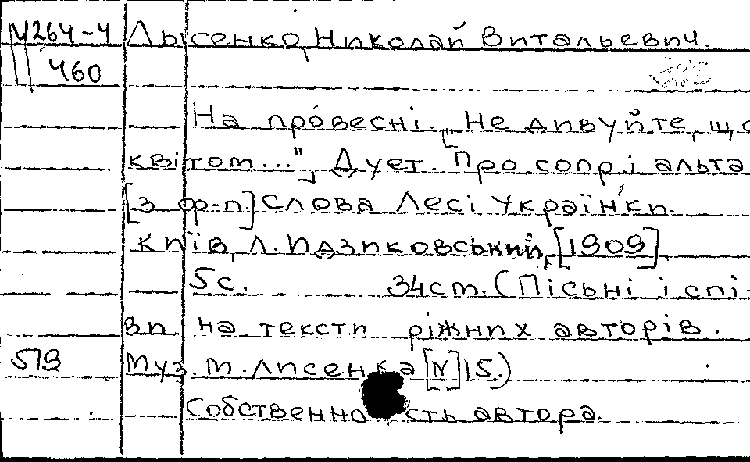 М264-4 Лысенко, Николай Витальевич.
460
На провесні. [„Не дивуйте, що
квітом..."] Дует. Про сопр. і альта
[з ф-п.] Слова Лесі Українки.
Київ, Л. Идзиковський, [1909].
5с. 34см. (Пісьні і спі-
ви на тексти ріжних авторів.
519 Муз. М. Лисенка [№] 15.)
Собственность автора.